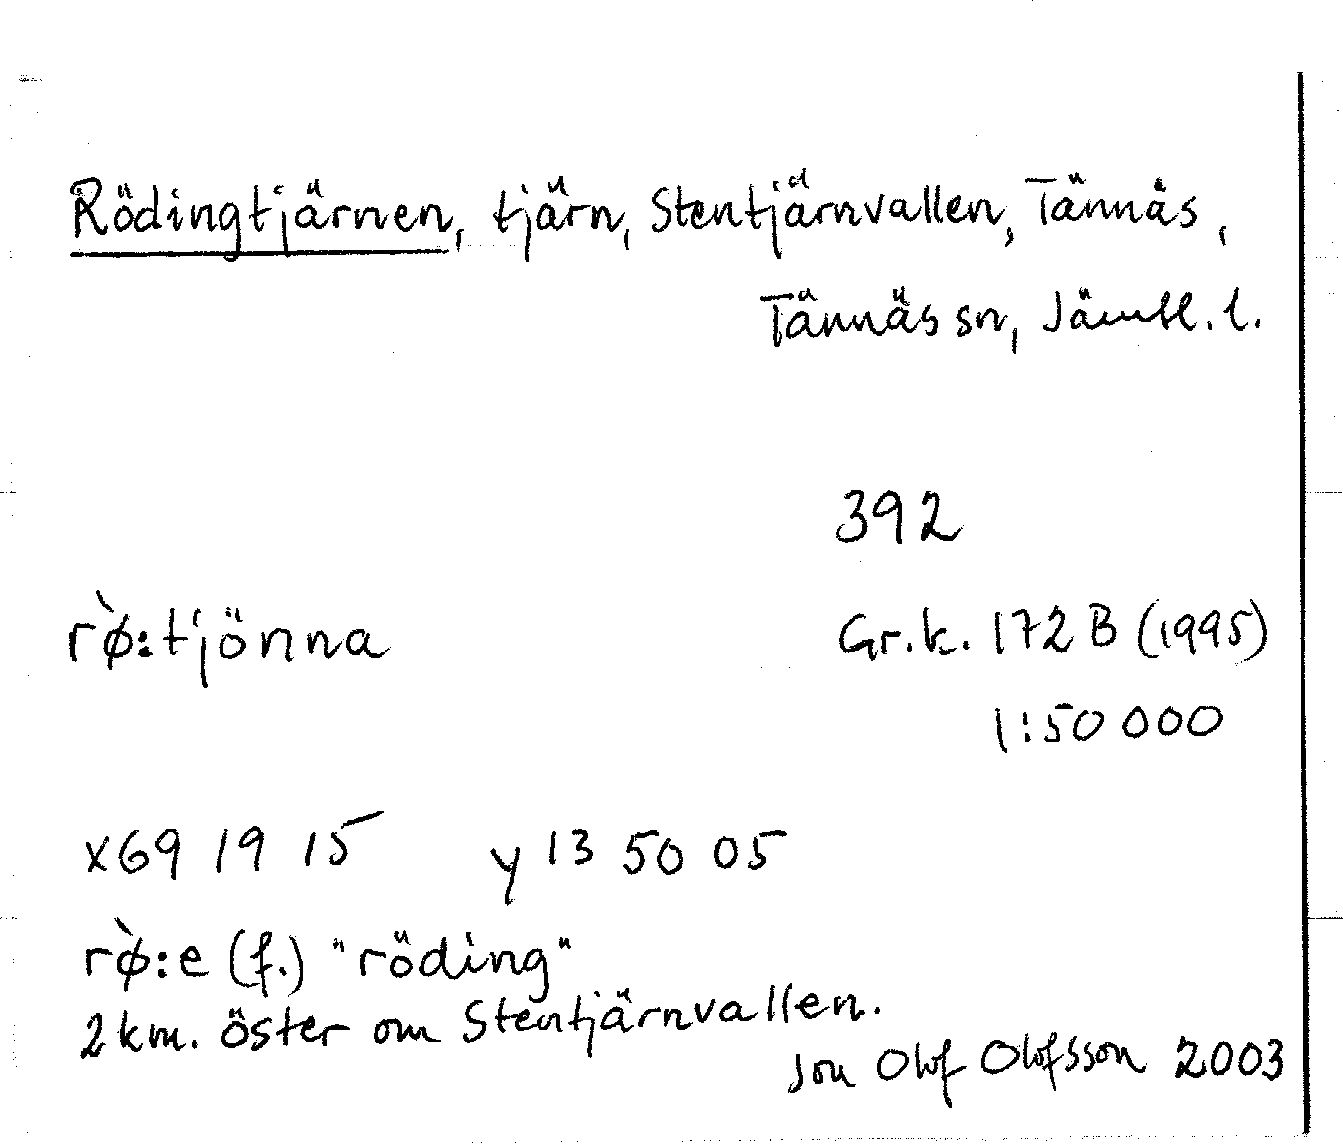 Rödingtjärnen, tjärn, Stentjärnvallen, Tännäs,
Tännäs sn, Jämtl. l.
392
rø̀:tjönna
Gr.k. 172 B (1995)
1:50 000
x69 19 15 y 13 50 05
rø̀:e (f.) "röding"
2 km. öster om Stentjärnvallen.
Jon Olof Olofsson 2003